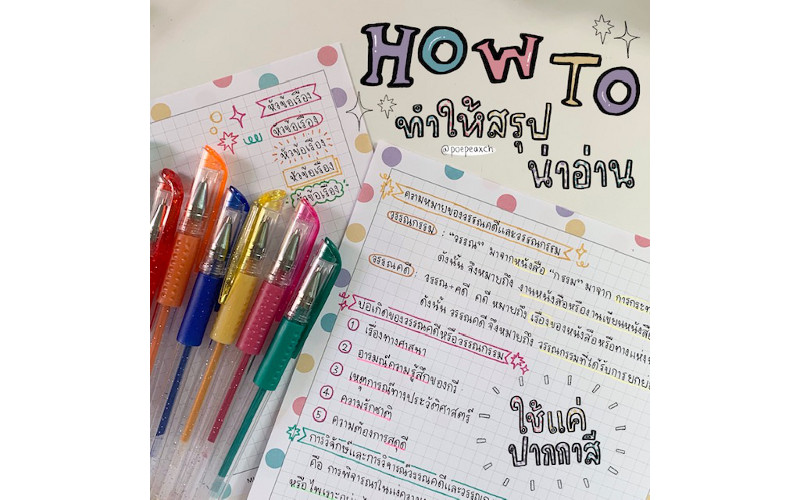 HOW TO
ทำให้สรุป
@poepeaxch
น่าอ่าน
หัวข้อเรื่อง
หัวข้อเรื่อง
หัวข้อเรื่อง
หัวข้อเรื่อง
หัวข้อเรื่อง
ความหมายของวรรณคดีและวรรณกรรม
วรรณกรรม : "วรรณ" มาจากหนังสือ "กรรม" มาจาก การกระทำ
ดังนั้น จึงหมายถึง งานหนังสือหรืองานเขียนหนังสือ
วรรณคดี : วรรณ+คดี คดี หมายถึง เรื่องของหนังสือหรือทางแห่ง
ดังนั้น วรรณคดี จึงหมายถึง วรรณกรรมที่ได้รับการยกย่อง
บ่อเกิดของวรรณคดีหรือวรรณกรรม
① เรื่องทางศาสนา
② อารมณ์ความรู้สึกของกวี
③ เหตุการณ์ทางประวัติศาสตร์
④ ความรักชาติ
⑤ ความต้องการสดุดี
ใช้แค่
ปากกาสี
การวิจักษ์และการวิจารณ์วรรณคดีและวรรณกรรม
คือ การพิจารณาในแง่ความ